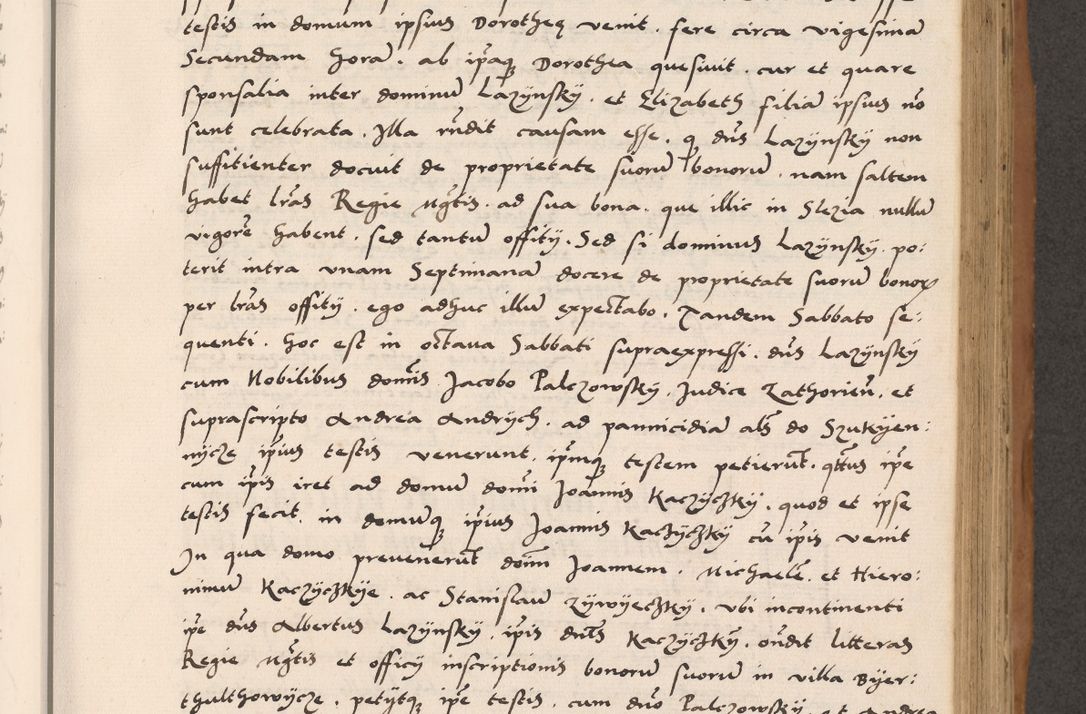 testis in domum ipsius Dorotheę venit . fere circa vigesimā
Secundam horā . ab ip̄aq̨ Dorothea quesiuit . cur et quare
sponsalia inter dominū Lazÿnskÿ . et Elizabeth filiā ipsius nō
sunt celebrata . Illa rn̄dit causam esse . q̨ dn̄s Lazÿnskÿ non
suffitienter docuit de proprietate suorū bonorū . nam saltem
habet lr̄as Regie Mg̃tis . ad sua bona . que illic in Slezia nullū
vigorē habent . sed tantū offitÿ . Sed si dominus Lazÿnskÿ . po:
terit intra vnam Septimanā docere de proprietate suorū bonoꝝ
per lr̄as offitÿ . ego adhuc illū expectabo . Tandem Sabbato se:
quenti . hoc est in octaua Sabbati supraexpressi . dn̄s Lazÿnskÿ
cum Nobilibus domīs Jacobo Palczowskÿ . Judice Zathorien̄ . et
suprascripto Andrea Andrÿch . ad pannicidiā al̄s do Szukÿen:
nÿcze ip̄ius testis venerunt . ip̄mq̨ testem petierūt . qt̄tus ip̄e
cum ip̄is iret ad domū domī Joannis Kaczÿczkÿ . quod et ipse
testis fecit . in domūq̨ ip̄ius Joannis Kaczÿczkÿ cū ip̄is venit
In qua domo prevenerūt domī Joannem . Michaelē . et Hiero:
nimū Kaczÿczkÿe . ac Stanislaū Zÿwÿeczkÿ . vbi incontinenti
ip̄e dn̄s Albertus Lazÿnskÿ . ip̄is dn̄is Kaczÿczkÿ . on̄dit litteras
Regie Mg̃tis et officÿ inscriptionis bonorū suorū in villa Bÿer:
thulthowÿcze . petÿtq̨ ip̄e testis . cum dn̄o Palczowskÿ . et Andrea